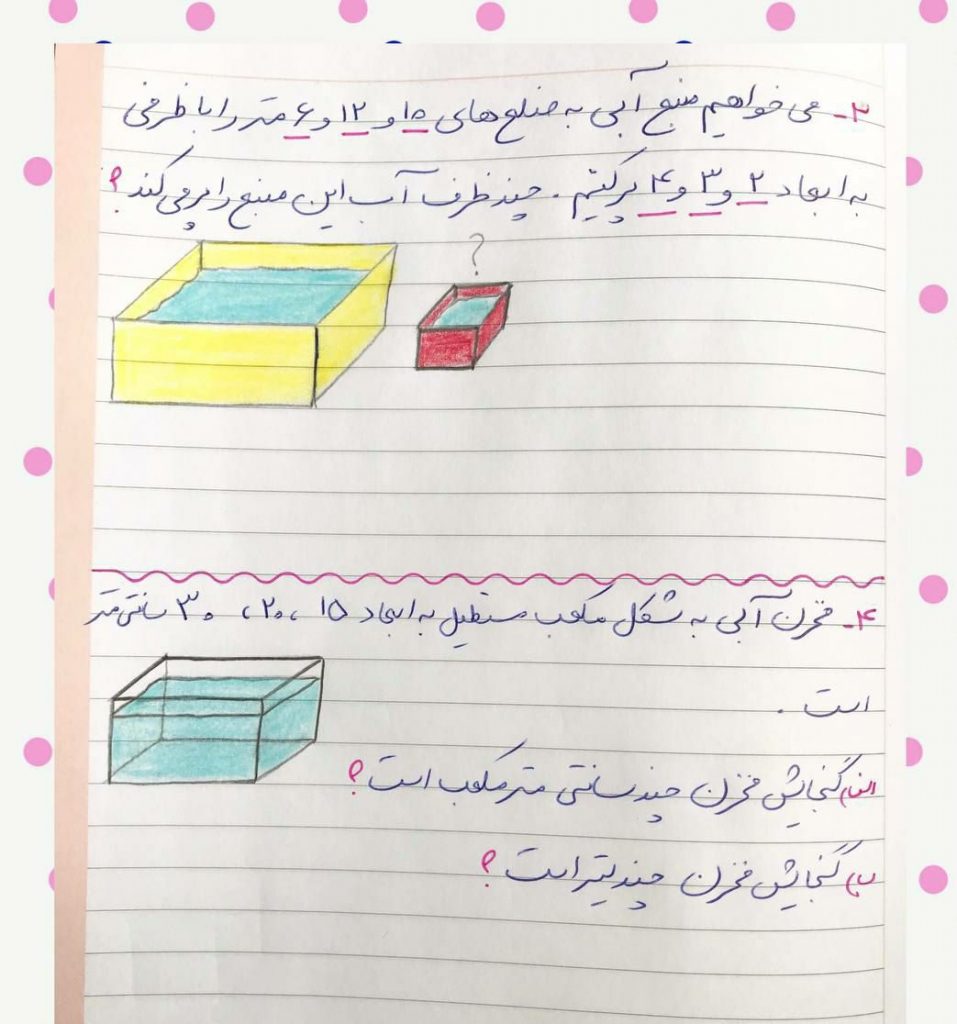 ۳- می خواهیم منبع آبی به ضلع های ۱۵ و ۱۲ و ۶ متر را با ظرفی
به ابعاد ۲ و ۳ و ۴ پر کنیم . چند ظرف آب این منبع را پر می کند ؟
?
۴- مخزن آبی به شکل مکعب مستطیل به ابعاد ۱۵ ، ۲۰ ، ۳۰ سانتی متر
است .
الف) گنجایش مخزن چند سانتی متر مکعب است ؟
ب) گنجایش مخزن چند لیتر است ؟